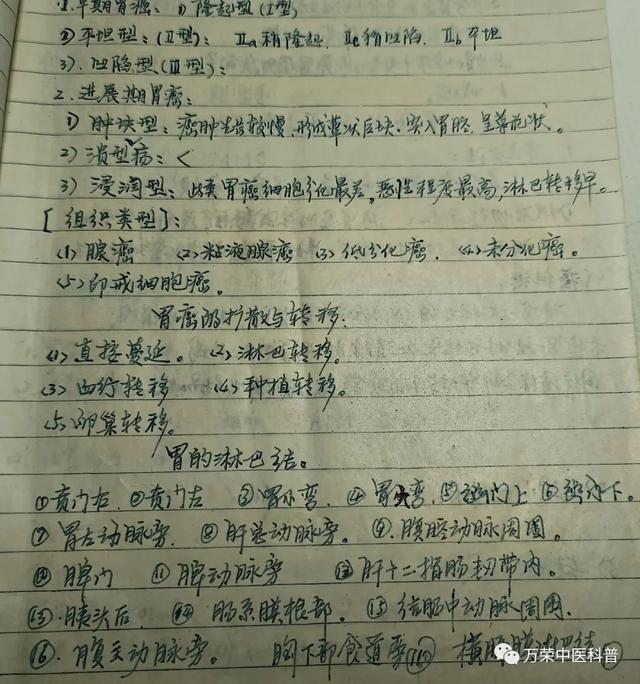 1.早期胃癌: ①隆起型(I型)
②平坦型:(II型): IIa稍隆起. IIc稍凹陷. IIb平坦
3).凹陷型(III型):
2.进展期胃癌:
1)肿块型:癌肿生长较慢,形成蕈状巨块.突入胃腔.呈蕈花状。
2)溃疡型:<
3)浸润型:此类胃癌细胞分化最差,恶性程度最高,淋巴转移早。
[组织类型]:
(1)腺癌 (2)粘液腺癌 (3)低分化癌. (4)未分化癌。
(5)印戒细胞癌。
胃癌的扩散与转移:
(1)直接蔓延。 (2)淋巴转移。
(3)血行转移 (4)种植转移。
(5)卵巢转移。
胃的淋巴结。
①贲门右. ②贲门左 ③胃小弯. ④胃大弯 ⑤幽门上 ⑥幽门下。
⑦胃左动脉旁. ⑧肝总动脉旁。 ⑨.腹腔动脉周围。
⑩脾门 ⑪脾动脉旁 ⑫肝十二指肠韧带内。
⑬.胰头后. ⑭肠系膜根部. ⑮结肠中动脉周围.
⑯.腹主动脉旁。 胸下部食道旁(110) 横
万荣中医科普